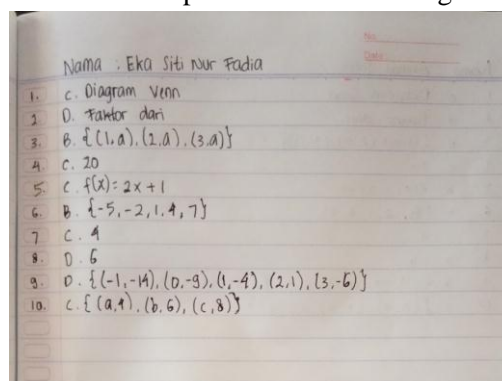 No.
Date:
Nama : Eka Siti Nur Fadia
1. C. Diagram Venn
2. D. Faktor dari
3. B. {(1,a), (2,a), (3,a)}
4. C. 20
5. C. f(x) = 2x + 1
6. B. {-5, -2, 1, 4, 7}
7 C. 4
8. D. 6
9. D. {(-1,-14), (0,-9), (1,-4), (2,1), (3,-6)}
10. C. {(a,4), (b,6), (c,8)}